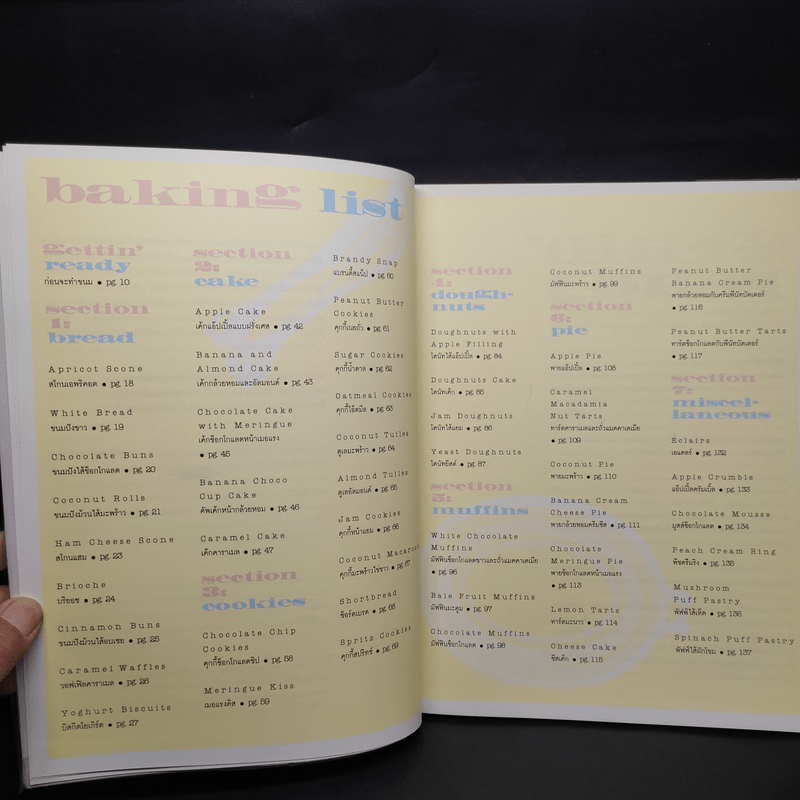 baking list
gettin'
ready
ก่อนจะทำขนม ● pg. 10
section
1:
bread
Apricot Scone
สโกนเอพริคอต ● pg. 18
White Bread
ขนมปังขาว ● pg. 19
Chocolate Buns
ขนมปังไส้ช็อกโกแลต ● pg. 20
Coconut Rolls
ขนมปังม้วนไส้มะพร้าว ● pg. 21
Ham Cheese Scone
สโกนแฮม ● pg. 23
Brioche
บริยอช ● pg. 24
Cinnamon Buns
ขนมปังม้วนไส้อบเชย ● pg. 25
Caramel Waffles
วอฟเฟิลคาราเมล ● pg. 26
Yoghurt Biscuits
บิสกิตโยเกิร์ต ● pg. 27
section
2:
cake
Apple Cake
เค้กแอ๊ปเปิ้ลแบบฝรั่งเศส ● pg. 42
Banana and
Almond Cake
เค้กกล้วยหอมและอัลมอนด์ ● pg. 43
Chocolate Cake
with Meringue
เค้กช็อกโกแลตหน้าเมอแรง
● pg. 45
Banana Choco
Cup Cake
คัพเค้กหน้ากล้วยหอม ● pg. 46
Caramel Cake
เค้กคาราเมล ● pg. 47
section
3:
cookies
Chocolate Chip
Cookies
คุกกี้ช็อกโกแลตชิป ● pg. 58
Meringue Kiss
เมอแรงคิส ● pg. 59
Brandy Snap
แบรนดี้สแน็ป ● pg. 60
Peanut Butter
Cookies
คุกกี้เนยถั่ว ● pg. 61
Sugar Cookies
คุกกี้น้ำตาล ● pg. 62
Oatmeal Cookies
คุกกี้โอ๊ตมีล ● pg. 63
Coconut Tuiles
ตูเลมะพร้าว ● pg. 64
Almond Tuiles
ตูเลอัลมอนด์ ● pg. 65
Jam Cookies
คุกกี้หน้าแยม ● pg. 66
Coconut Macaroon
คุกกี้มะพร้าวไข่ขาว ● pg. 67
Shortbread
ช็อร์ตเบรด ● pg. 68
Spritz Cookies
คุกกี้สปริทซ์ ● pg. 69
section
4:
dough-
nuts
Doughnuts with
Apple Filling
โดนัทไส้แอ๊ปเปิ้ล ● pg. 84
Doughnuts Cake
โดนัทเค้ก ● pg. 85
Jam Doughnuts
โดนัทไส้แยม ● pg. 86
Yeast Doughnuts
โดนัทยีสต์ ● pg. 87
section
5:
muffins
White Chocolate
Muffins
มัฟฟินช็อกโกแลตขาวและถั่วแมคคาเดเมีย
● pg. 96
Bale Fruit Muffins
มัฟฟินมะตูม ● pg. 97
Chocolate Muffins
มัฟฟินช็อกโกแลต ● pg. 98
Coconut Muffins
มัฟฟินมะพร้าว ● pg. 99
section
6:
pie
Apple Pie
พายแอ๊ปเปิ้ล ● pg. 108
Caramel
Macadamia
Nut Tarts
ทาร์ตคาราเมลและถั่วแมคคาเดเมีย
● pg. 109
Coconut Pie
พายมะพร้าว ● pg. 110
Banana Cream
Cheese Pie
พายกล้วยหอมครีมชีส ● pg. 111
Chocolate
Meringue Pie
พายช็อกโกแลตหน้าเมอแรง
● pg. 113
Lemon Tarts
ทาร์ตมะนาว ● pg. 114
Cheese Cake
ชีสเค้ก ● pg. 115
Peanut Butter
Banana Cream Pie
พายกล้วยหอมกับครีมพีนัทบัตเตอร์
● pg. 116
Peanut Butter Tarts
ทาร์ตช็อกโกแลตกับพีนัทบัตเตอร์
● pg. 117
section
7:
miscel-
laneous
Éclairs
เอแคลร์ ● pg. 132
Apple Crumble
แอ๊ปเปิ้ลครัมเบิ้ล ● pg. 133
Chocolate Mousse
มูสช็อกโกแลต ● pg. 134
Peach Cream Ring
พีชครีมริง ● pg. 135
Mushroom
Puff Pastry
พัฟฟ์ไส้เห็ด ● pg. 136
Spinach Puff Pastry
พัฟฟ์ไส้ผักโขม ● pg. 137